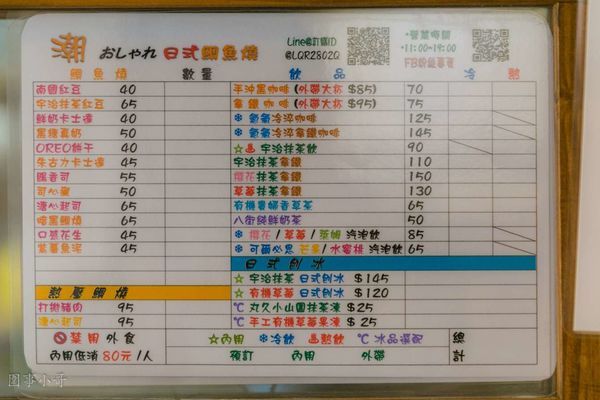 潮 おしゃれ 日式鯛魚燒 Line@訂購ID @LQR2802Q 營業時間 11:00~19:00 FB粉絲專頁
鯛魚燒 數量 飲品 冷 熱
南國紅豆 40 手沖黑咖啡 (外帶大杯 $85) 70
宇治抹茶紅豆 65 拿鐵咖啡 (外帶大杯 $95) 75
鮮奶卡士達 40 ❄ 氮氣冷淬咖啡 125
黑糖真奶 50 ❄ 氮氣冷淬拿鐵咖啡 145
OREO餅干 40 ☆♨ 宇治抹茶飲 90
朱古力卡士達 45 宇治抹茶拿鐵 110
腸香可 55 櫻花抹茶拿鐵 150
可心蜜 50 草莓抹茶拿鐵 130
溏心起司 65 有機書婦香草茶 65
暗黑鯛燒 65 八街純鮮奶茶 50
口袋花生 45 ❄ 櫻花 / 草莓 / 萊姆 汽泡飲 85
紫薯魚泥 45 ❄ 可爾必思 / 水蜜桃 汽泡飲 65
日式刨冰
☆ 宇治抹茶 日式刨冰 $145
熱壓鯛燒 ☆ 有機草莓 日式刨冰 $120
打拋豬肉 95 ℃ 丸久小山園抹茶凍 $25
溏心起司 95 ℃ 手工有機草莓果凍 $25
🚫禁用外食 ☆內用 ❄冷飲 ♨熱飲 ℃冰品選配 總
內用低消 80元/人 預訂 內用 外帶 計